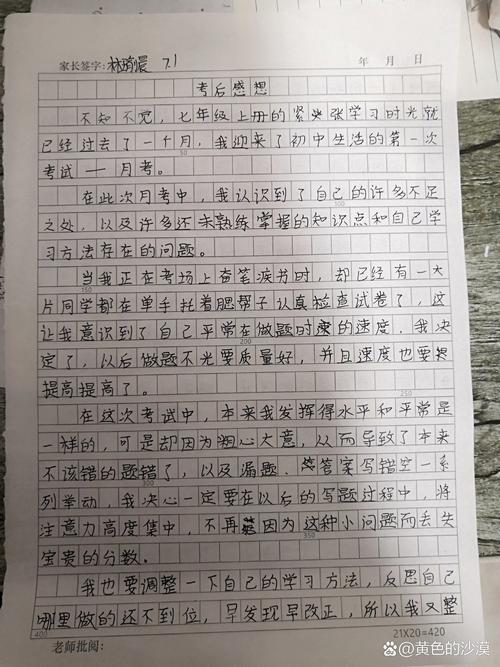 家长签字: 林瑜晨 7.1 年 月 日
考后感想
不知不觉，七年级上册的紧张学习时光就
已经过去了一个月，我迎来了初中生活的第一次
考试——月考。
50
在此次月考中，我认识到了自己的许多不足
之处，以及许多还未熟练掌握的知识点和自己学
100
习方法存在的问题。
当我正在考场上奋笔疾书时，却已经有一大
150
片同学都在单手托着腮帮子认真检查试卷了，这
让我意识到了自己平常在做题时的速度，我决
200
定了，以后做题不光要质量好，并且速度也要
提高提高了。
250
在这次考试中，本来我发挥得水平和平常是
一样的，可是却因为粗心大意，从而导致了本来
不该错的题错了，以及漏题、答案写错空一系
300
列举动，我决心一定要在以后的写题过程中，将
注意力高度集中，不再因为这种小问题而丢失
350
宝贵的分数。
我也要调整一下自己的学习方法，反思自己
哪里做的还不到位，早发现早改正，所以我又整
400 21X20=420
老师批阅:
@黄色的沙漠